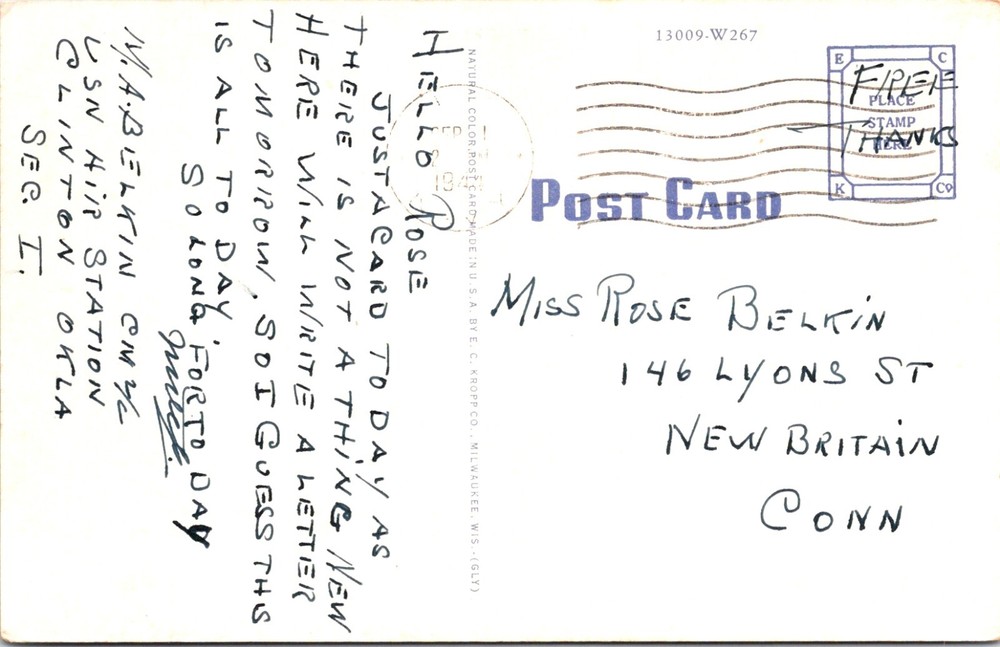 13009-W267
E C
PLACE
STAMP
HERE
K Co
FREE
THANKS
POST CARD
NATURAL COLOR POST CARD MADE IN U.S.A. BY E. C. KROPP CO., MILWAUKEE, WIS.-(GLY)
HELLO ROSE
JUST A CARD TO DAY AS
THERE IS NOT A THING NEW
HERE WILL WRITE A LETTER
TOMORROW. SO I GUESS THS
IS ALL TO DAY.
SO LONG FOR TO DAY
N.A. BELKIN CM 2/C
USN AIR STATION
CLINTON OKLA
SEC. I.
MISS ROSE BELKIN
146 LYONS ST
NEW BRITAIN
CONN